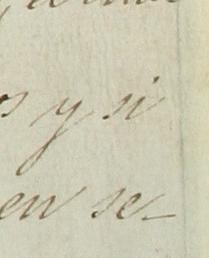 os y si
en se-